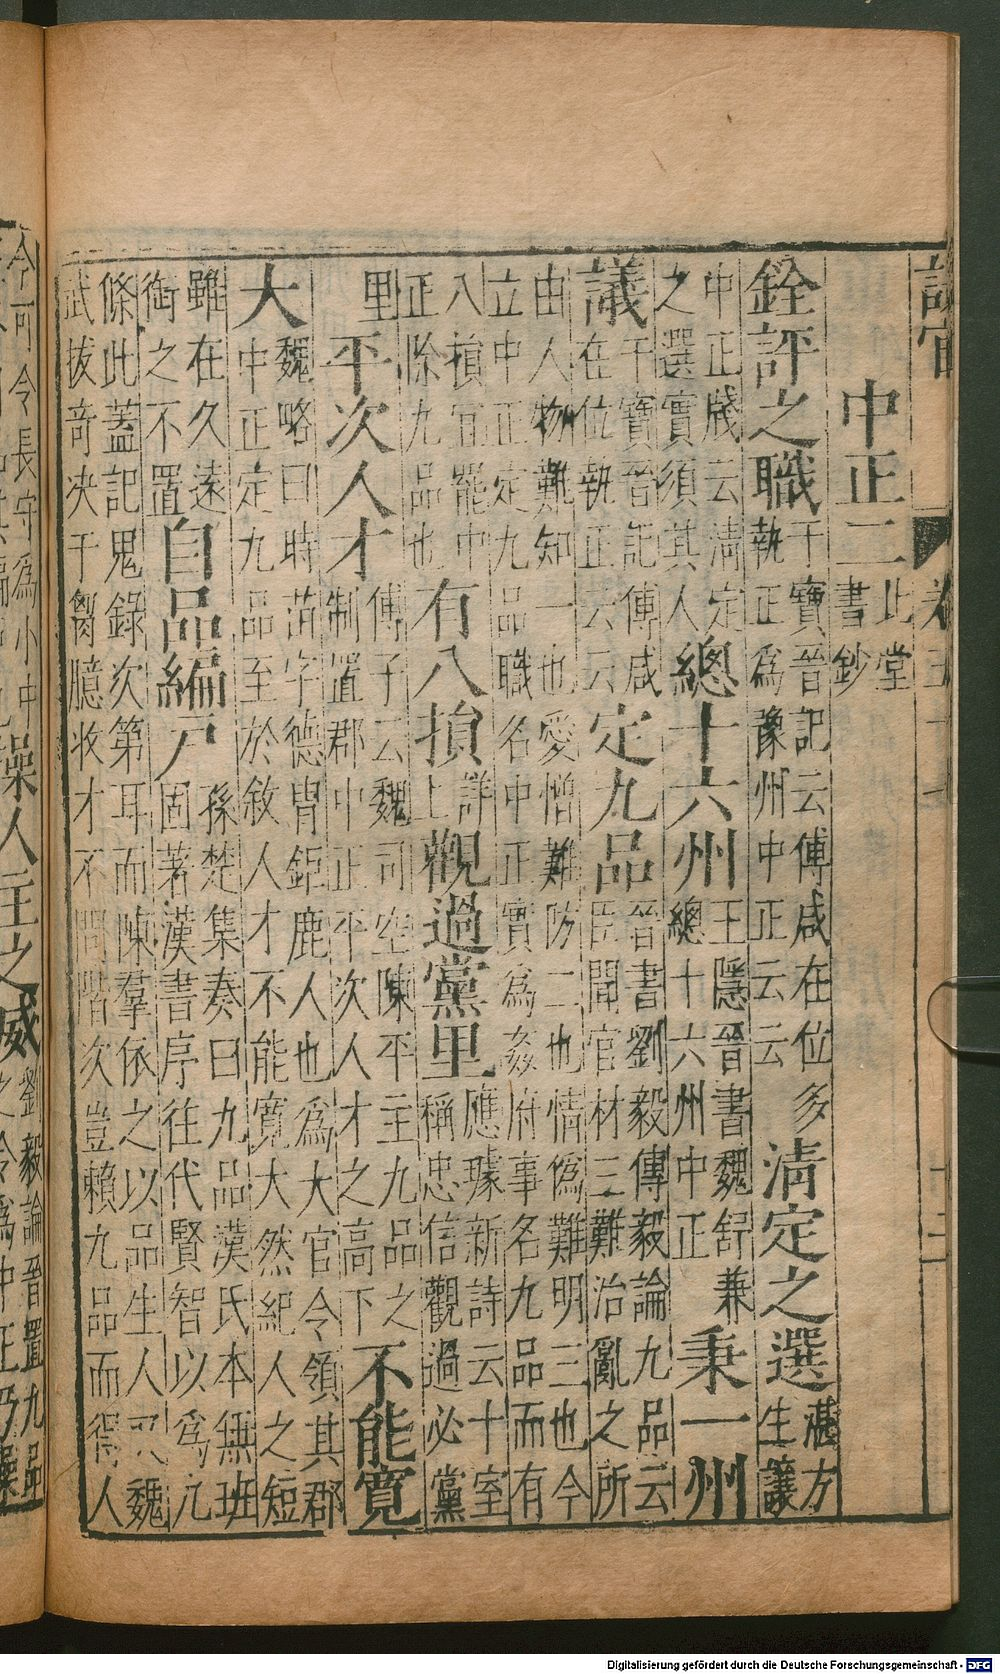 設官
中正二北堂書鈔
銓評之職干寶晉記云傅咸在位多執正為豫州中正云云清定之選湛方生讓
中正牋云清定之選實須其人總十六州王隱晉書魏舒兼總十六州中正秉一州
議干寶晉記傅咸在位執正云云定九品晉書劉毅傳毅論九品云臣聞官材三難治亂之所
由人物難知一也愛憎難防二也情偽難明三也今立中正定九品職名中正實為姦府事名九品而有
八損宜罷中正除九品也有八損詳上觀過黨里應璩新詩云十室稱忠信觀過必黨
里平次人才傅子云魏司空陳平主九品之制置郡中正平次人才之高下不能寬
大魏略曰時苗字德胄鉅鹿人也為大官令領其郡中正定九品至於敘人才不能寬大然紀人之短
雖在久遠銜之不置自品編戶孫楚集奏曰九品漢氏本無班固著漢書序往代賢智以為九
條此蓋記鬼錄次第耳而陳羣依之以品生人又魏武拔奇决于胷臆收才不問階次豈賴九品而得人
今可令長守為小中
操人主之威劉毅論晉置九品
Digitalisierung gefördert durch die Deutsche Forschungsgemeinschaft - DFG